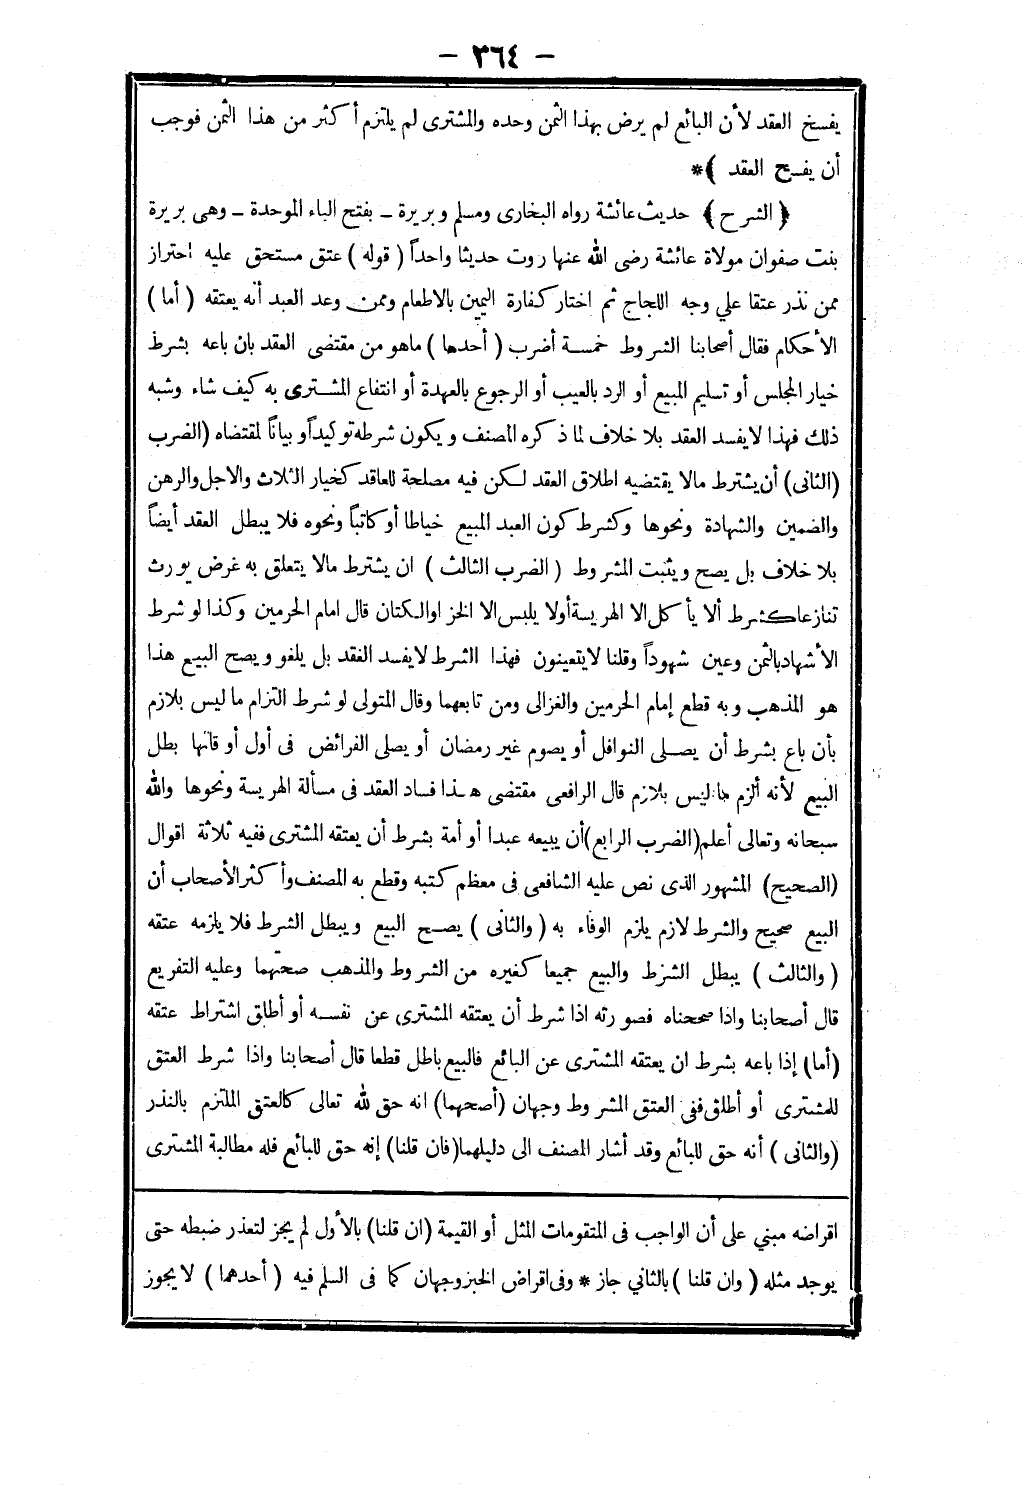 - ٣٦٤ -
يفسخ العقد لأن البائع لم يرض بهذا الثمن وحده والمشترى لم يلتزم أكثر من هذا الثمن فوجب
أن يفسخ العقد ﴾*
﴿ الشرح ﴾ حديث عائشة رواه البخارى ومسلم وبريرة - بفتح الباء الموحدة - وهى بريرة
بنت صفوان مولاة عائشة رضى الله عنها روت حديثا واحداً ( قوله ) عتق مستحق عليه احتراز
ممن نذر عتقا علي وجه اللجاج ثم اختار كفارة اليمين بالاطعام وممن وعد العبد أنه يعتقه ( أما )
الأحكام فقال أصحابنا الشروط خمسة أضرب ( أحدها ) ماهو من مقتضى العقد بان باعه بشرط
خيار المجلس أو تسليم المبيع أو الرد بالعيب أو الرجوع بالعهدة أو انتفاع المشترى به كيف شاء وشبه
ذلك فهذا لايفسد العقد بلا خلاف لما ذكره المصنف ويكون شرطه توكيداً وبياناً لمقتضاه (الضرب
(الثانى) أن يشترط مالا يقتضيه اطلاق العقد لكن فيه مصلحة للعاقد كخيار الثلاث والاجل والرهن
والضمين والشهادة ونحوها وكشرط كون العبد المبيع خياطا أو كاتباً ونحوه فلا يبطل العقد أيضاً
بلا خلاف بل يصح ويثبت المشروط ( الضرب الثالث ) ان يشترط مالا يتعلق به غرض يورث
تنازعا كشرط ألا يأكل الا الهريسة أولا يلبس الا الخز اوالكتان قال امام الحرمين وكذا لو شرط
الأشهاد بالثمن وعين شهوداً وقلنا لايتعينون فهذا الشرط لايفسد العقد بل يلغو ويصح البيع هذا
هو المذهب وبه قطع إمام الحرمين والغزالى ومن تابعهما وقال المتولى لو شرط التزام ما ليس بلازم
بأن باع بشرط أن يصلى النوافل أو يصوم غير رمضان أو يصلى الفرائض فى أول أوقاتها بطل
البيع لأنه ألزم ما ليس بلازم قال الرافعى مقتضى هذا فساد العقد فى مسألة الهريسة ونحوها والله
سبحانه وتعالى أعلم (الضرب الرابع) أن يبيعه عبدا أو أمة بشرط أن يعتقه المشترى ففيه ثلاثة اقوال
(الصحيح) المشهور الذى نص عليه الشافعى فى معظم كتبه وقطع به المصنف وأكثر الأصحاب أن
البيع صحيح والشرط لازم يلزم الوفاء به ( والثانى ) يصح البيع ويبطل الشرط فلا يلزمه عتقه
( والثالث ) يبطل الشرط والبيع جميعا كغيره من الشروط والمذهب صحتهما وعليه التفريع
قال أصحابنا واذا صححناه فصورته اذا شرط أن يعتقه المشترى عن نفسه أو أطلق اشتراط عتقه
(أما) إذا باعه بشرط ان يعتقه المشترى عن البائع فالبيع باطل قطعا قال أصحابنا واذا شرط العتق
للمشترى أو أطلق ففى العتق المشروط وجهان (أصحهما) انه حق لله تعالى كالعتق الملتزم بالنذر
(والثانى ) أنه حق للبائع وقد أشار المصنف الى دليلهما (فان قلنا) إنه حق للبائع فله مطالبة المشترى
اقراضه مبني على أن الواجب فى المتقومات المثل أو القيمة (ان قلنا) بالأول لم يجز لتعذر ضبطه حتى
يوجد مثله ( وان قلنا ) بالثاني جاز * وفى اقراض الخبز وجهان كما فى السلم فيه ( أحدهما ) لا يجوز